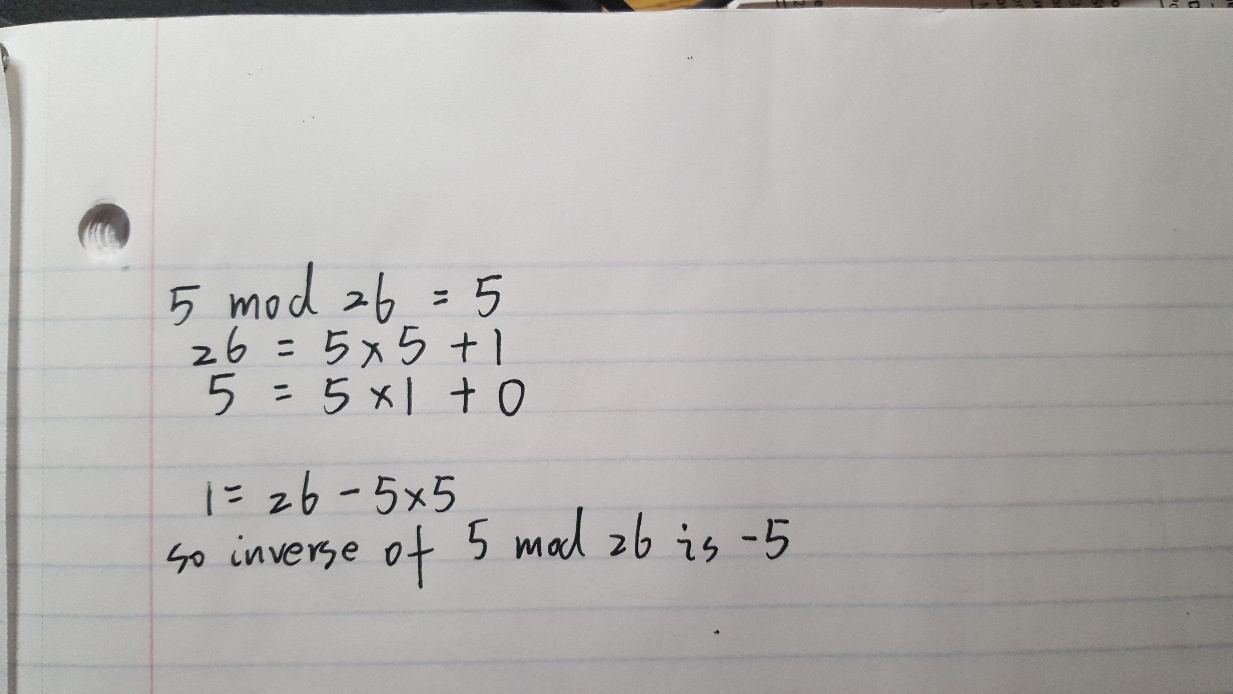 5 mod 26 = 5
26 = 5 × 5 + 1
5 = 5 × 1 + 0
1 = 26 - 5 × 5
so inverse of 5 mod 26 is -5